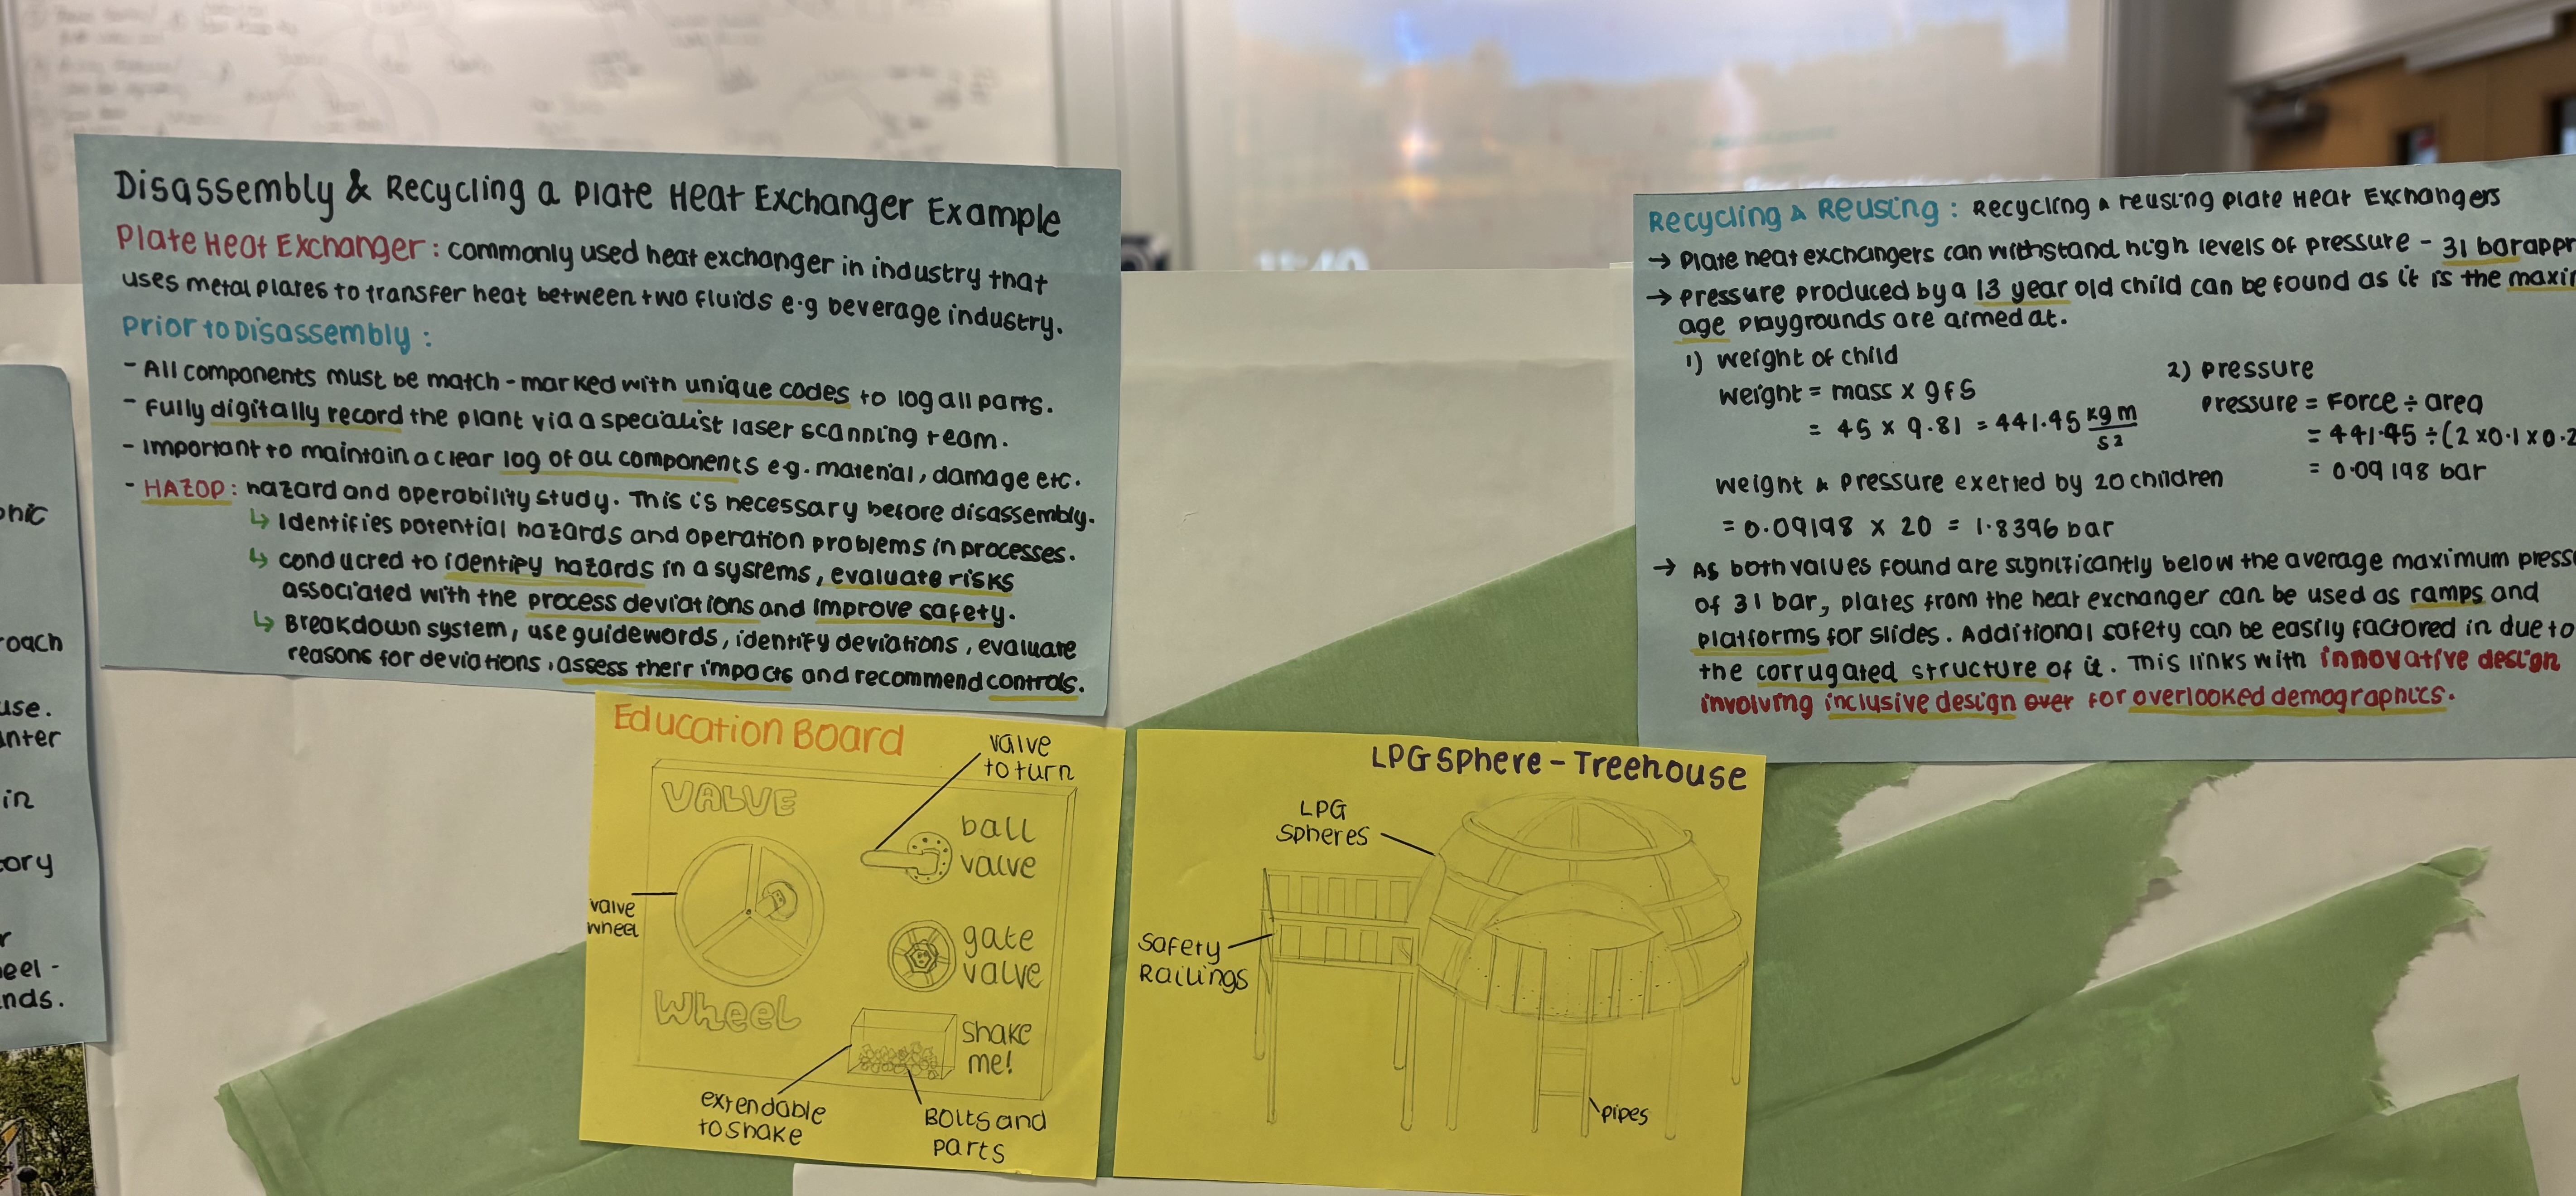 Disassembly & Recycling a Plate Heat Exchanger Example
Plate Heat Exchanger : commonly used heat exchanger in industry that
uses metal plates to transfer heat between two fluids e.g beverage industry.
Prior to Disassembly :
- All components must be match-marked with unique codes to log all parts.
- Fully digitally record the plant via a specialist laser scanning team.
- Important to maintain a clear log of all components e.g. material, damage etc.
- HAZOP : hazard and operability study. This is necessary before disassembly.
↳ Identifies potential hazards and operation problems in processes.
↳ conducted to identify hazards in a systems, evaluate risks
associated with the process deviations and improve safety.
↳ Breakdown system, use guidewords, identify deviations, evaluate
reasons for deviations, assess their impacts and recommend controls.
Recycling & Reusing : Recycling & reusing Plate Heat Exchangers
→ Plate heat exchangers can withstand high levels of pressure - 31 bar appr
→ Pressure produced by a 13 year old child can be found as it is the maxi
age playgrounds are armed at.
1) weight of child
weight = mass x gfs
= 45 x 9.81 = 441.45 kg m
s²
2) Pressure
Pressure = Force ÷ area
= 441.45 ÷ (2 x 0.1 x 0.2
= 0.09198 bar
weight & pressure exerted by 20 children
= 0.09198 x 20 = 1.8396 bar
→ As both values found are significantly below the average maximum press
of 31 bar, plates from the heat exchanger can be used as ramps and
platforms for slides. Additional safety can be easily factored in due to
the corrugated structure of it. This links with innovative design
involving inclusive design over for overlooked demographics.
onic
roach
use.
unter
in
tory
r
eel -
nds.
Education Board
valve
to turn
VALVE
WHEEL
valve
wheel
ball
valve
gate
valve
shake
me!
extendable
to shake
Bolts and
parts
LPG Sphere - Treehouse
LPG
Spheres
Safety
Railings
pipes
11:40